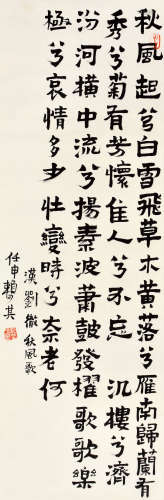 秋風起兮白雲飛草木黃落兮雁南歸蘭有
秀兮菊有芳懷佳人兮不忘汎樓兮濟
汾河橫中流兮揚素波蕭鼓發櫂歌歌樂
極兮哀情多少壯變時兮奈老何
漢劉徹秋風歌
壬申賴少其